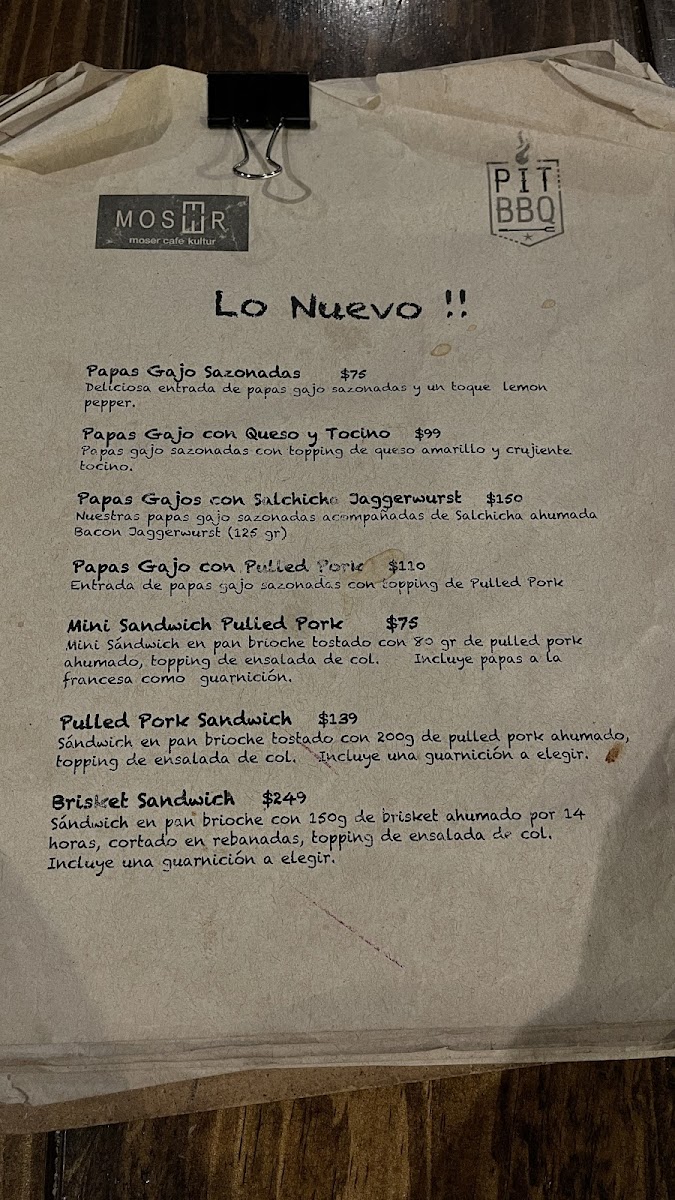 MOSER
moser cafe kultur
PIT
BBQ
Lo Nuevo !!
Papas Gajo Sazonadas $75
Deliciosa entrada de papas gajo sazonadas y un toque lemon
pepper.
Papas Gajo con Queso y Tocino $99
Papas gajo sazonadas con topping de queso amarillo y crujiente
tocino.
Papas Gajos con Salchicha Jaggerwurst $150
Nuestras papas gajo sazonadas acompañadas de Salchicha ahumada
Bacon Jaggerwurst (125 gr)
Papas Gajo con Pulled Pork $110
Entrada de papas gajo sazonadas con topping de Pulled Pork
Mini Sandwich Pulled Pork $75
Mini Sándwich en pan brioche tostado con 80 gr de pulled pork
ahumado, topping de ensalada de col. Incluye papas a la
francesa como guarnición.
Pulled Pork Sandwich $139
Sándwich en pan brioche tostado con 200g de pulled pork ahumado,
topping de ensalada de col. Incluye una guarnición a elegir.
Brisket Sandwich $249
Sándwich en pan brioche con 150g de brisket ahumado por 14
horas, cortado en rebanadas, topping de ensalada de col.
Incluye una guarnición a elegir.